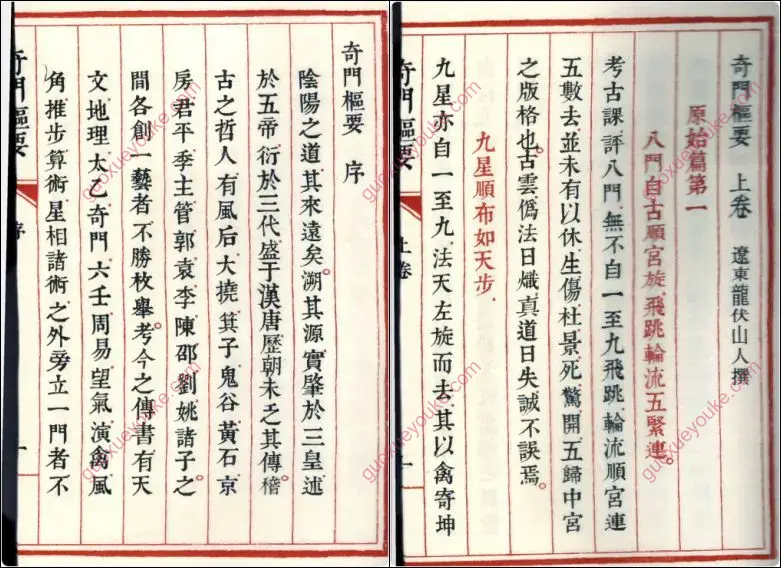 奇門樞要　序
陰陽之道其來遠矣。溯其源實肇於三皇述
於五帝衍於三代盛于漢唐歷朝未乏其傳稽
古之哲人有風后大撓箕子鬼谷黃石京
房君平季主管郭袁李陳邵劉姚諸子之
間各創一藝者不勝枚舉。考今之傳書有天
文地理太乙奇門六壬周易望氣演禽風
角推步算術星相諸術之外旁立一門者不
奇門樞要　序
奇門樞要　上卷　遼東龍伏山人撰
原始篇第一
八門自古順宮旋飛跳輪流五緊連
考古課評八門無不自一至九飛跳輪流順宮連
五數去並未有以休生傷杜景死驚開五歸中宮
之版格也。古雲偽法日熾真道日失誠不誤焉。
九星順布如天步
九星亦自一至九法天左旋而去其以禽寄坤
奇門樞要　上卷
guoxueyouke.com